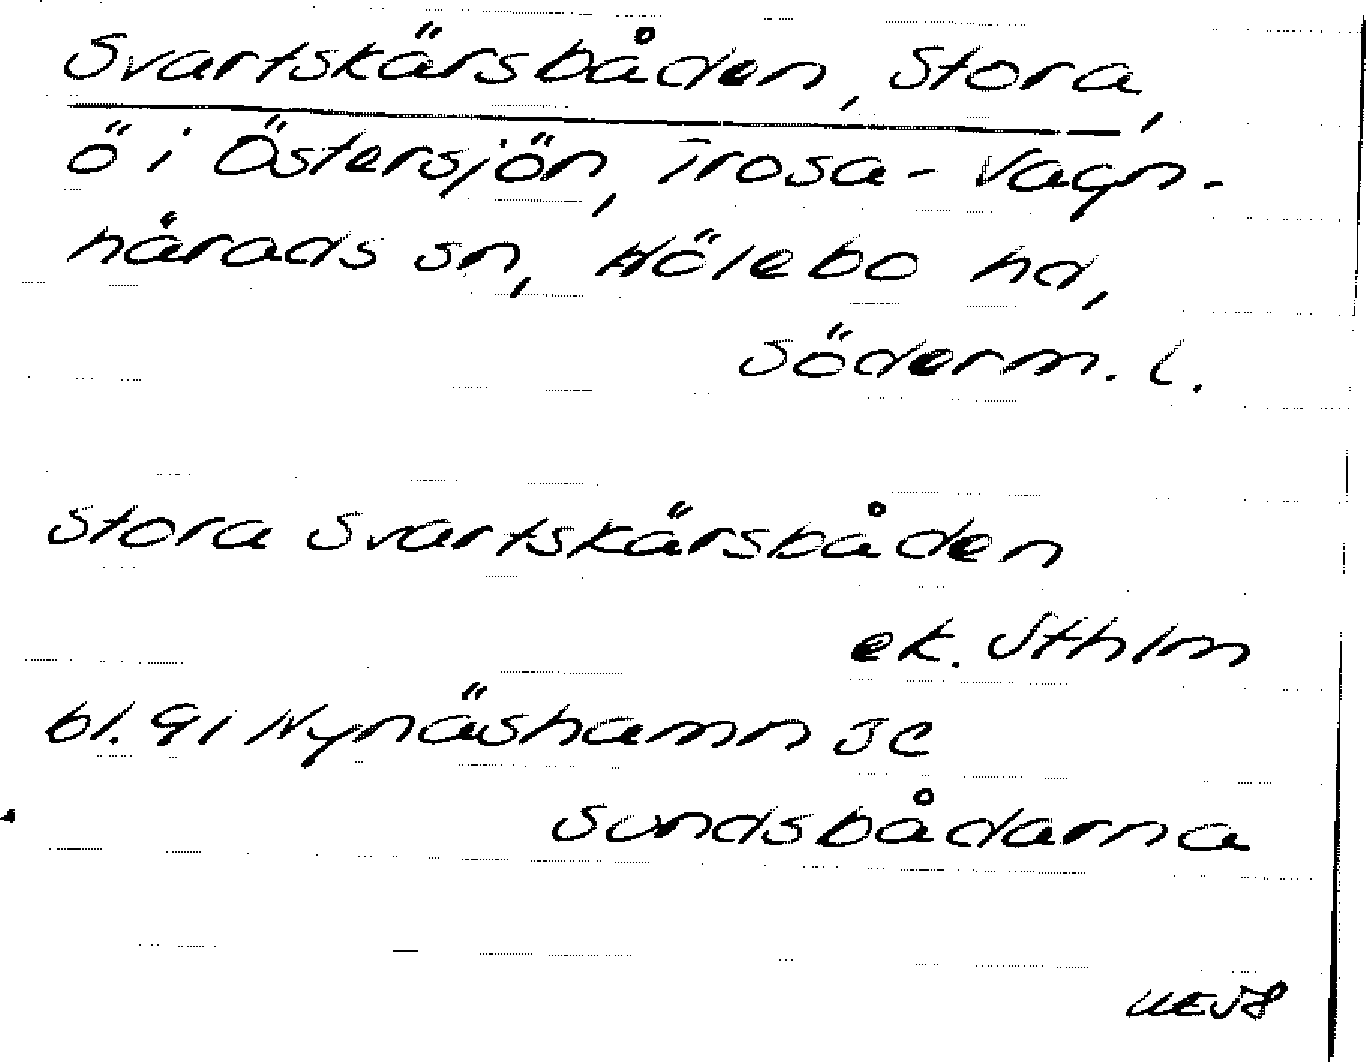 Svartskärsbåden, Stora,
ö i Östersjön, Trosa-Vagn-
härads sn, Hölebo hd,
Söderm. l.
Stora Svartskärsbåden
ek. Sthlm
bl. 91 Nynäshamn SE
Sundsbådarna